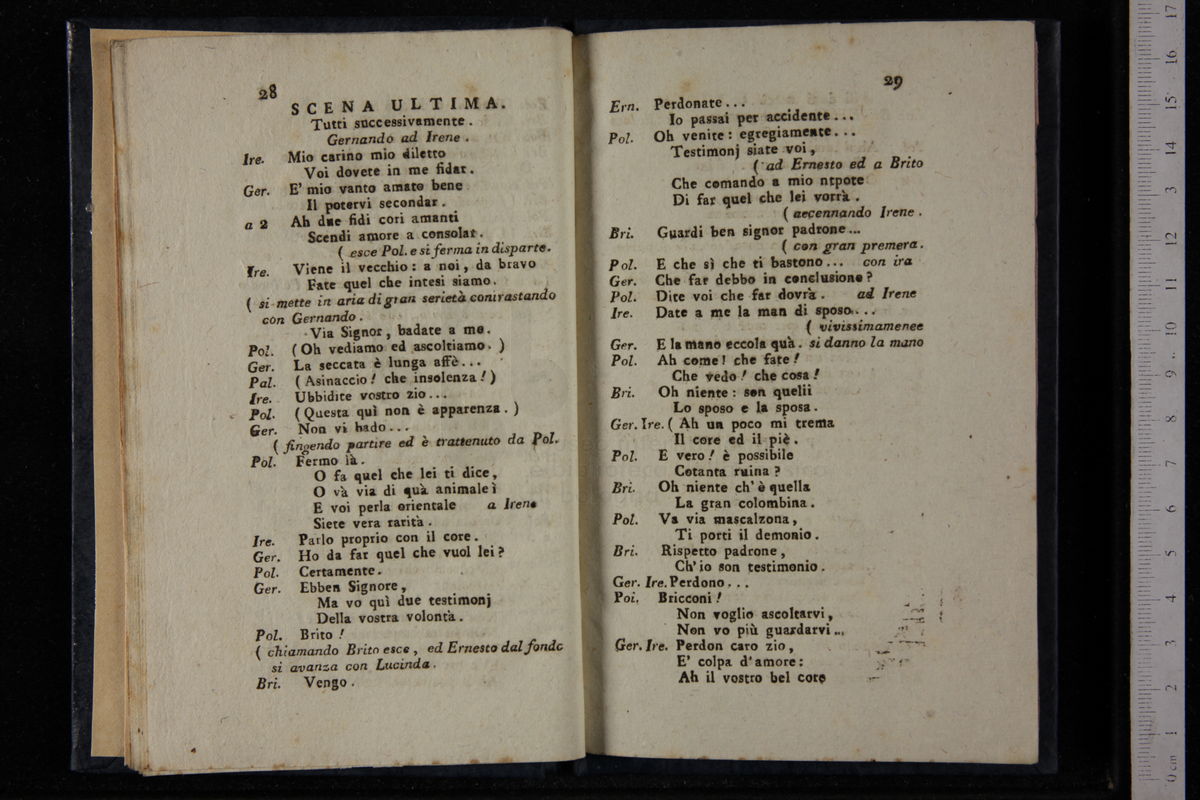 28
SCENA ULTIMA.
Tutti successivamente.
Gernando ad Irene.
Ire. Mio carino mio diletto
Voi dovete in me fidar.
Ger. E' mio vanto amato bene
Il potervi secondar.
a 2 Ah due fidi cori amanti
Scendi amore a consolar.
( esce Pol. e si ferma in disparte.
Ire. Viene il vecchio: a noi, da bravo
Fate quel che intesi siamo.
( si mette in aria di gran serietà contrastando
con Gernando.
Via Signor, badate a me.
Pol. (Oh vediamo ed ascoltiamo. )
Ger. La seccata è lunga affè...
Pal. (Asinaccio! che insolenza!)
Ire. Ubbidite vostro zio...
Pol. (Questa quì non è apparenza.)
Ger. Non vi bado...
( fingendo partire ed è trattenuto da Pol.
Pol. Fermo là.
O fa quel che lei ti dice,
O và via di quà animale!
E voi perla orientale a Irene
Siete vera rarità.
Ire. Parlo proprio con il core.
Ger. Ho da far quel che vuol lei?
Pol. Certamente.
Ger. Ebben Signore,
Ma vo quì due testimonj
Della vostra volontà.
Pol. Brito!
( chiamando Brito esce, ed Ernesto dal fondo
si avanza con Lucinda.
Bri. Vengo.
29
Ern. Perdonate...
Io passai per accidente...
Pol. Oh venite: egregiamente...
Testimonj siate voi,
( ad Ernesto ed a Brito
Che comando a mio nepote
Di far quel che lei vorrà.
( accennando Irene.
Bri. Guardi ben signor padrone...
( con gran premera.
Pol. E che sì che ti bastono... con ira
Ger. Che far debbo in conclusione?
Pol. Dite voi che far dovrà. ad Irene
Ire. Date a me la man di sposo...
( vivissimamenee
Ger. E la mano eccola quà. si danno la mano
Pol. Ah come! che fate!
Che vedo! che cosa!
Bri. Oh niente: son quelii
Lo sposo e la sposa.
Ger. Ire. ( Ah un poco mi trema
Il core ed il piè.
Pol. E vero! è possibile
Cotanta ruina?
Bri. Oh niente ch'è quella
La gran colombina.
Pol. Va via mascalzona,
Ti porti il demonio.
Bri. Rispetto padrone,
Ch'io son testimonio.
Ger. Ire. Perdono...
Poi. Bricconi!
Non voglio ascoltarvi,
Non vo più guardarvi...
Ger. Ire. Perdon caro zio,
E' colpa d'amore:
Ah il vostro bel core
0 cm 1 2 3 4 5 6 7 8 9 10 11 12 13 14 15 16 17